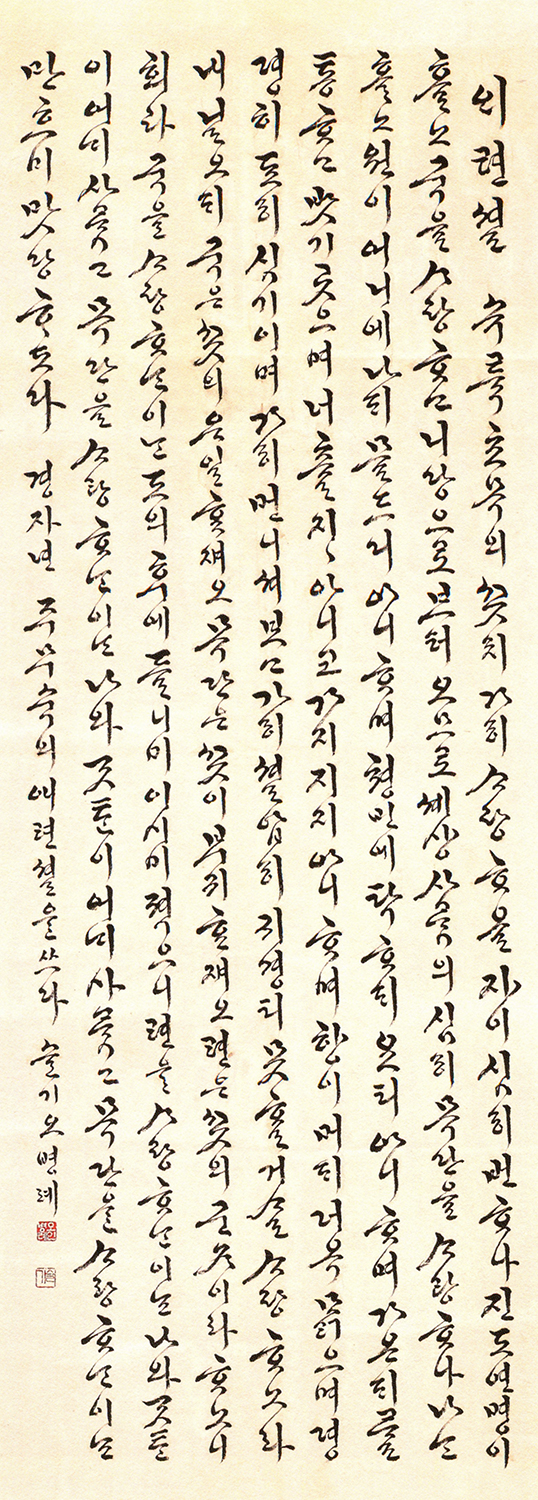 ᄋᆡ련셜 슈륙 초목의 ᄭᅩᆺ치 가히 ᄉᆞ랑ᄒᆞᄋᆞᆯ 자이 심히 번ᄒᆞ나 진 도연명이
홀노 국을 ᄉᆞ랑ᄒᆞ고 니당으로브터 오므로 셰상 사ᄅᆞᆷ의 심히 목단을 ᄉᆞ랑ᄒᆞ나 나ᄂᆞᆫ
홀노 련이 어니에 나되 믈드디 아니ᄒᆞ며 탁ᄒᆞ되 요티 아니ᄒᆞ며 가온되
통ᄒᆞ고 밧기 곳으며 너츌지〻 아니코 가지지지 아니ᄒᆞ며 향이 머되 더욱 ᄆᆞᆰ으며 경
경히 조히 심기이며 가히 먼니셔 보고 가히 셜압히 지졍티 못ᄒᆞᆯ 거ᄉᆞᆯ ᄉᆞ랑ᄒᆞ노라
내 닐오되 국은 ᄭᅩᆺ의 은일ᄒᆞᆫ재오 목단은 ᄭᅩᆺ이 부귀ᄒᆞᆫ재오 련은 ᄭᅩᆺ의 군ᄌᆞ이라 ᄒᆞ노니
희라 국을 ᄉᆞ랑ᄒᆞᄂᆞᆫ이ᄂᆞᆫ 도의 후에 들니미 이시미 젹으니 련을 ᄉᆞ랑ᄒᆞᄂᆞᆫ이ᄂᆞᆫ 나와 ᄀᆞᆺᄐᆞᆫ
이 어ᄂᆡ 사ᄅᆞᆷ고 목단을 ᄉᆞ랑ᄒᆞᄂᆞᆫ이ᄂᆞᆫ 나와 ᄀᆞᆺᄐᆞᆫ이 어ᄂᆡ 사ᄅᆞᆷ고 목단을 ᄉᆞ랑ᄒᆞᄂᆞᆫ이ᄂᆞᆫ
만ᄒᆞ미 맛당ᄒᆞ도다 경자년 주무숙의 애련셜을 쓰다 슬기 오명례